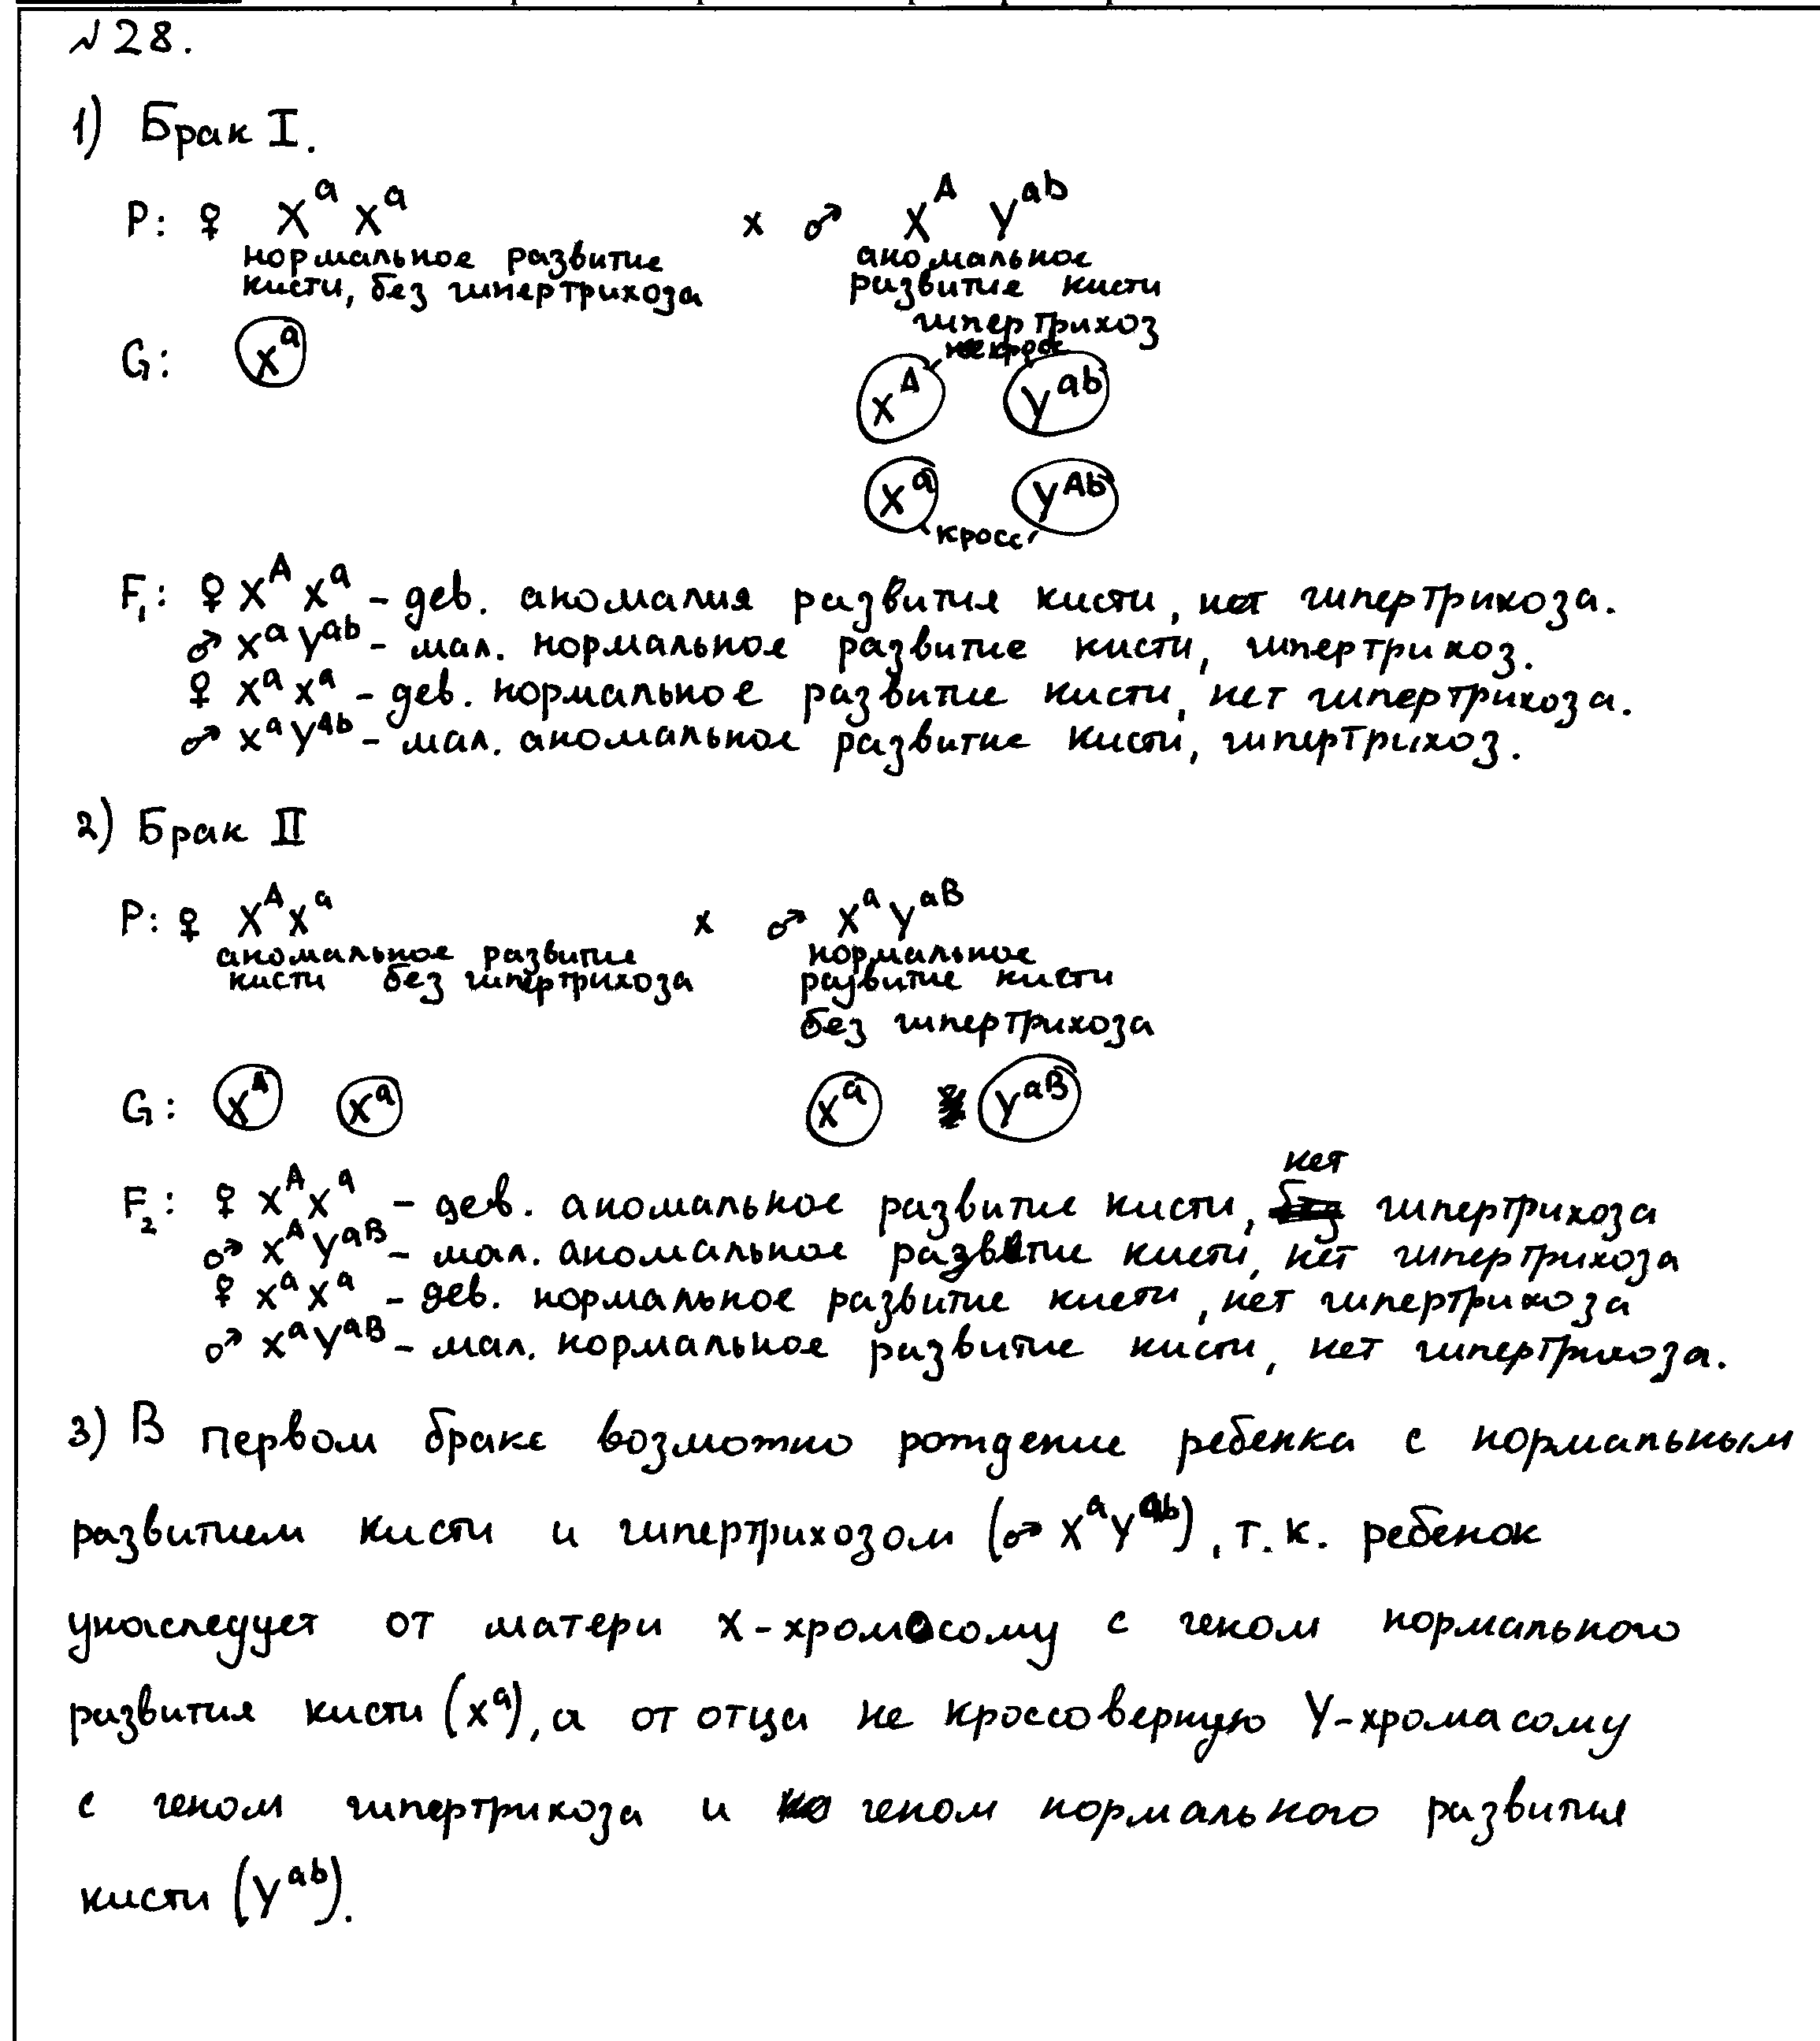 №28.
1) Брак I.
P: ♀ X^a X^a x ♂ X^A Y^ab
нормальное развитие аномальное
кисти, без гипертрихоза развитие кисти
гипертрихоз
некросс
G: X^a X^A Y^ab
X^a Y^Ab
кросс
F₁: ♀ X^A X^a - дев. аномалия развития кисти, нет гипертрихоза.
♂ X^a Y^ab - мал. нормальное развитие кисти, гипертрихоз.
♀ X^a X^a - дев. нормальное развитие кисти, нет гипертрихоза.
♂ X^a Y^Ab - мал. аномальное развитие кисти, гипертрихоз.
2) Брак II
P: ♀ X^A X^a x ♂ X^a Y^aB
аномальное развитие нормальное
кисти без гипертрихоза развитие кисти
без гипертрихоза
G: X^A X^a X^a Y^aB
F₂: ♀ X^A X^a - дев. аномальное развитие кисти, нет гипертрихоза
♂ X^A Y^aB - мал. аномальное развитие кисти, нет гипертрихоза
♀ X^a X^a - дев. нормальное развитие кисти, нет гипертрихоза
♂ X^a Y^aB - мал. нормальное развитие кисти, нет гипертрихоза.
3) В первом браке возможно рождение ребенка с нормальным
развитием кисти и гипертрихозом (♂ X^a Y^ab), т.к. ребенок
унаследует от матери X-хромосому с геном нормального
развития кисти (X^a), а от отца не кроссоверную Y-хромасому
с геном гипертрихоза и геном нормального развития
кисти (Y^ab).